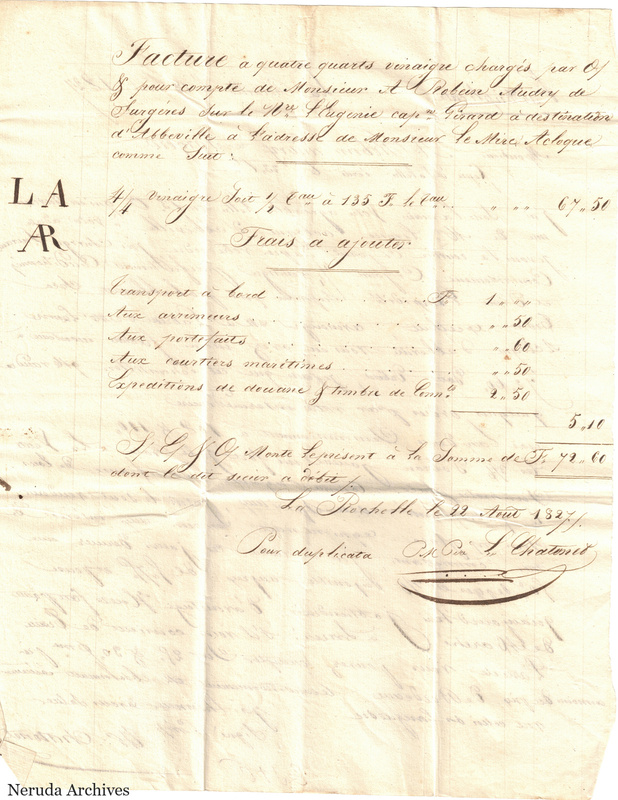 Facture à quatre quarts vinaigre chargés par O/
& pour compte de Monsieur A Robein Audry de
Surgères Sur le N.re l'Eugenie cap.ne Girard à destination
d'Abbeville à l'adresse de Monsieur Le Mire Acloque
comme Suit :
L A
AR
4/4 Vinaigre Soit 1/2 t.au à 135 F. le t.au .. „ „ „ 67 „ 50
Frais a ajouter
Transport à bord . . . . . . F. 1 „ „„
Aux arrimeurs . . . . . . „ „ 50
Aux portefaits . . . . . . „ „ 60
Aux courtiers maritimes . . . . „ „ 50
Expeditions de douane & timbre de Conn.t 2 „ 50
5 „ 10
S. E & O/ Monte le present à la Somme de F. 72 „ 60
dont le dit sieur a débit/.
La Rochelle le 22 Aout 1827/.
Pour duplicata Chatonet
Neruda Archives